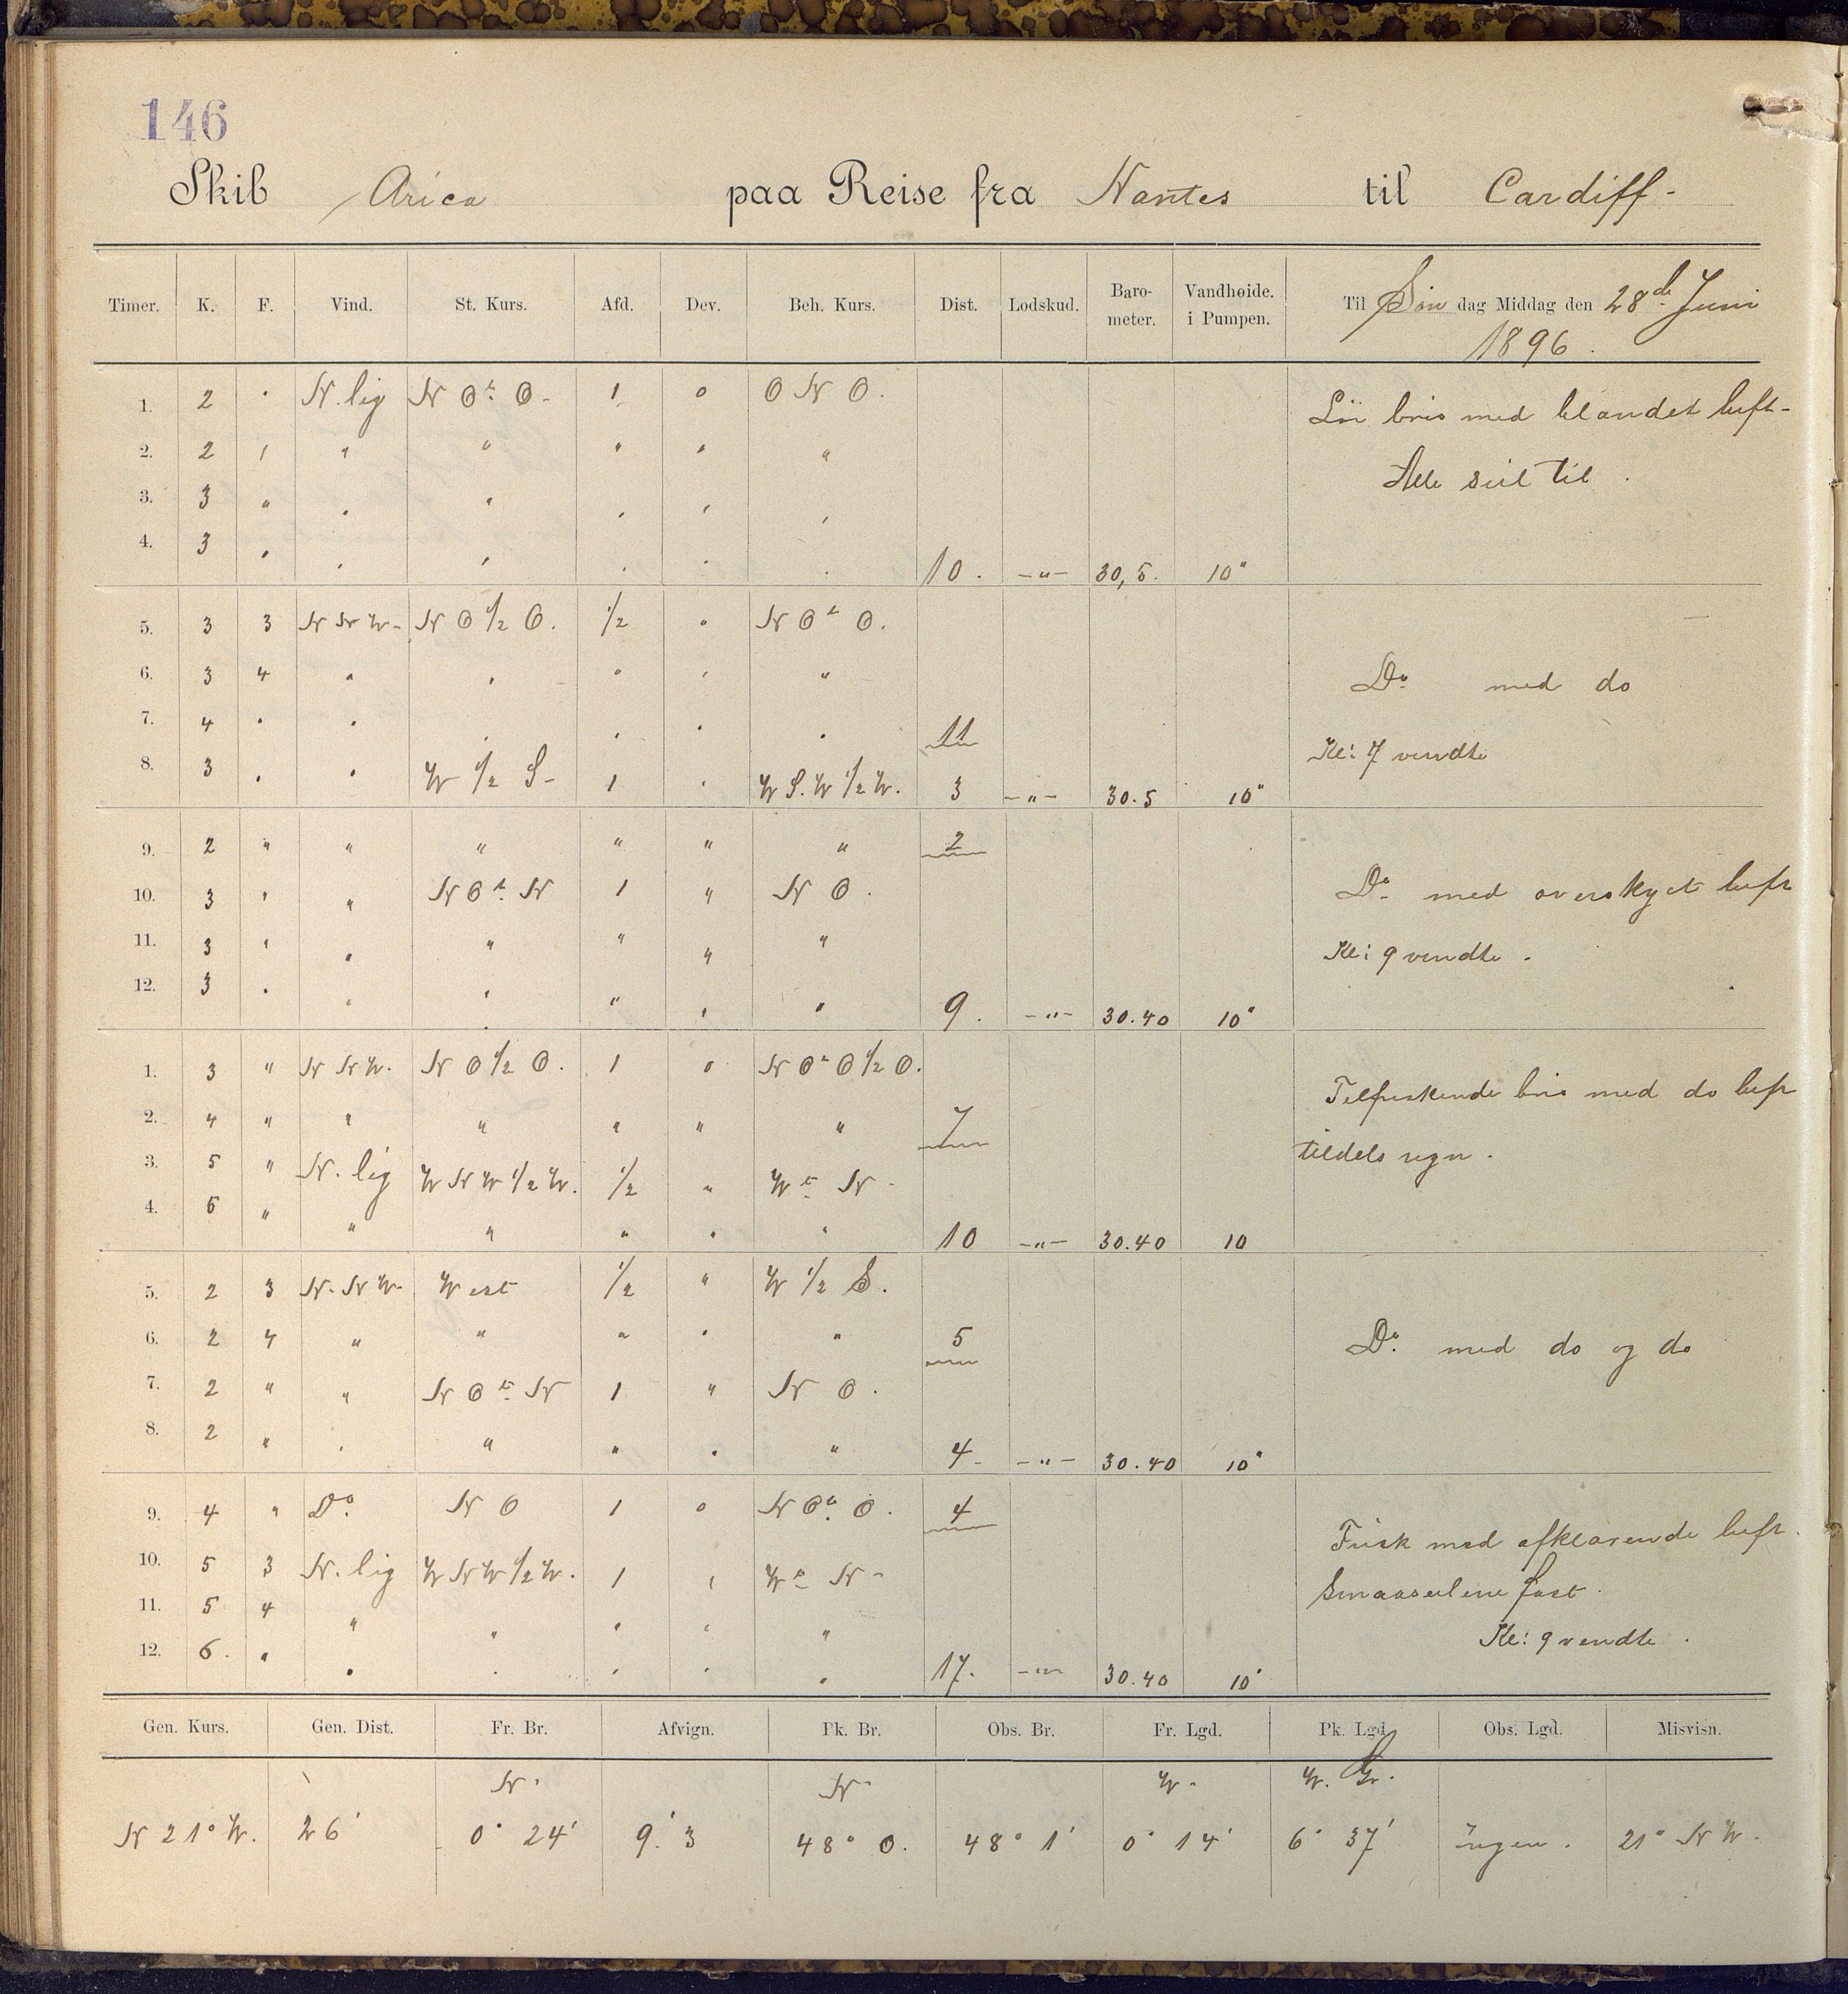 146
Skib Arica paa Reise fra Nantes til Cardiff -
Timer. K. F. Vind. St. Kurs. Afd. Dev. Beh. Kurs. Dist. Lodskud. Baro-meter. Vandhøide. i Pumpen. Til Søn dag Middag den 28de Juni 1896.
1. 2 " N. lig N O t. O. 1 0 O N O. Lör bris med blandet luft-
2. 2 1 " " " " "
Alle seil til.
3. 3 " " " " " "
4. 3 " " " " " " 10. -"- 30,5. 10"
5. 3 3 N N W- N O 1/2 O. 1/2 " N O t O.
6. 3 4 " " " " " Do med do
7. 4 " " " " " " 11
Kl: 7 vendte
8. 3 " " W 1/2 S- 1 " W S. W 1/2 W. 3 -"- 30.5 10"
9. 2 " " " " " " 2
10. 3 " " N O t. N 1 " N O. Do med overskyet luft
11. 3 " " " " " " Kl: 9 vendte.
12. 3 " " " " " " 9. -"- 30.40 10"
1. 3 " N N W. N O 1/2 O. 1 0 N O t O 1/2 O.
Tilfriskende bris med do luft
2. 4 " " " " " " 7
3. 5 " N. lig W N W 1/2 W. 1/2 " W t. N - tildels regn.
4. 5 " " " " " " 10 -"- 30.40 10
5. 2 3 N. N W- West 1/2 " W 1/2 S.
6. 2 4 " " " " " 5 Do med do og do
7. 2 " " N O t. N 1 " N O.
8. 2 " " " " " " 4- -"- 30.40 10"
9. 4 " Do N O 1 0 N O t. O. 4
Frisk med afklarende luft.
10. 5 3 N. lig W N W 1/2 W. 1 " W t. N -
Smaaseilene fast.
11. 5 4 " " " " "
Kl: 9 vendte.
12. 6. " " " " " " 17. -"- 30.40 10"
Gen. Kurs. Gen. Dist. Fr. Br. Afvign. Pk. Br. Obs. Br. Fr. Lgd. Pk. Lgd. Obs. Lgd. Misvisn.
N. N- W- W. Gr.
N 21° W. 26' 0° 24' 9.' 3 48° 0. 48° 1' 0° 14' 6° 37' Ingen. 21° N W.